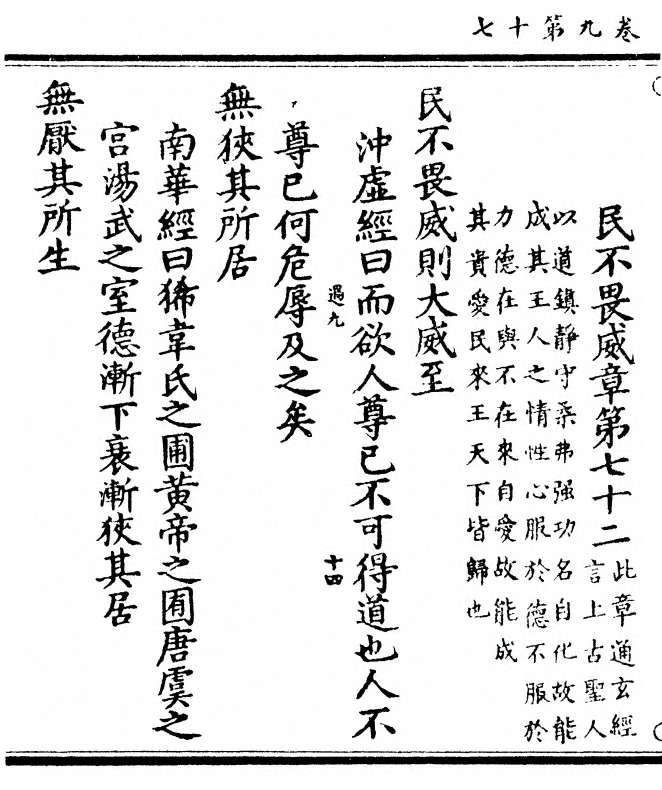 七十第九卷
民不畏威章第七十二此章通玄經
言上古聖人
以道鎮靜守柔弗强功名自化故能
成其王人之情性心服於德不服於
力德在與不在來自愛故能成
其貴愛民來王天下皆歸也
民不畏威則大威至
沖虛經曰而欲人尊已不可得道也人不
遇九
十四
尊已何危辱及之矣
無狹其所居
南華經曰狶韋氏之圃黃帝之囿唐虞之
宮湯武之室德漸下衰漸狹其居
無厭其所生